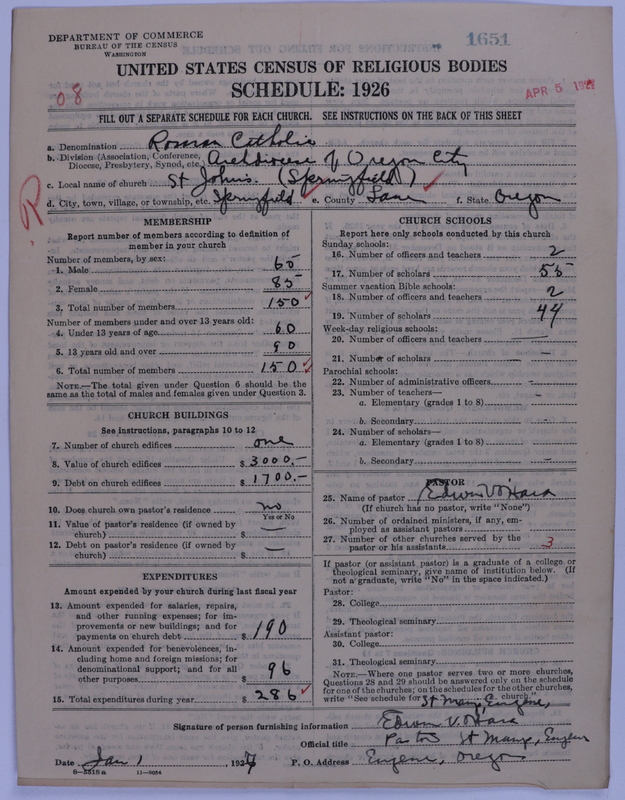 DEPARTMENT OF COMMERCE
BUREAU OF THE CENSUS
WASHINGTON
1651
UNITED STATES CENSUS OF RELIGIOUS BODIES
SCHEDULE: 1926
08
APR 5
FILL OUT A SEPARATE SCHEDULE FOR EACH CHURCH. SEE INSTRUCTIONS ON THE BACK OF THIS SHEET
a. Denomination Roman Catholic
b. Division (Association, Conference, Diocese, Presbytery, Synod, etc.) Archdiocese of Oregon City
c. Local name of church St John's. (Springfield)
d. City, town, village, or township, etc. Springfield e. County Lane f. State Oregon
R
MEMBERSHIP
Report number of members according to definition of
member in your church
Number of members, by sex:
1. Male 65
2. Female 85
3. Total number of members 150
Number of members under and over 13 years old:
4. Under 13 years of age 60
5. 13 years old and over 90
6. Total number of members 150
NOTE.—The total given under Question 6 should be the
same as the total of males and females given under Question 3.
CHURCH BUILDINGS
See instructions, paragraphs 10 to 12
7. Number of church edifices one
8. Value of church edifices $ 3000.–
9. Debt on church edifices $ 1700.–
10. Does church own pastor's residence no
Yes or No
11. Value of pastor's residence (if owned by
church) $ —
12. Debt on pastor's residence (if owned by
church) $ —
EXPENDITURES
Amount expended by your church during last fiscal year
13. Amount expended for salaries, repairs,
and other running expenses; for im-
provements or new buildings; and for
payments on church debt $ 190
14. Amount expended for benevolences, in-
cluding home and foreign missions; for
denominational support; and for all
other purposes $ 96
15. Total expenditures during year $ 286
CHURCH SCHOOLS
Report here only schools conducted by this church
Sunday schools:
16. Number of officers and teachers 2
17. Number of scholars 55
Summer vacation Bible schools:
18. Number of officers and teachers 2
19. Number of scholars 44
Week-day religious schools:
20. Number of officers and teachers —
21. Number of scholars –
Parochial schools:
22. Number of administrative officers –
23. Number of teachers—
a. Elementary (grades 1 to 8) –
b. Secondary –
24. Number of scholars—
a. Elementary (grades 1 to 8) –
b. Secondary –
PASTOR
25. Name of pastor Edwin V O'Hara
(If church has no pastor, write "None")
26. Number of ordained ministers, if any, em-
ployed as assistant pastors
27. Number of other churches served by the
pastor or his assistants 3
If pastor (or assistant pastor) is a graduate of a college or
theological seminary, give name of institution below. (If
not a graduate, write "No" in the space indicated.)
Pastor:
28. College
29. Theological seminary
Assistant pastor:
30. College
31. Theological seminary
NOTE.—Where one pastor serves two or more churches,
Questions 28 and 29 should be answered only on the schedule
for one of the churches; on the schedules for the other churches,
write "See schedule for St Marys Eugene, church."
Signature of person furnishing information Edwin V. O'Hara
Official title Pastor St Marys, Eugene
Date Jan 1, 1927 P. O. Address Eugene, Oregon
8—5518a 11—9034